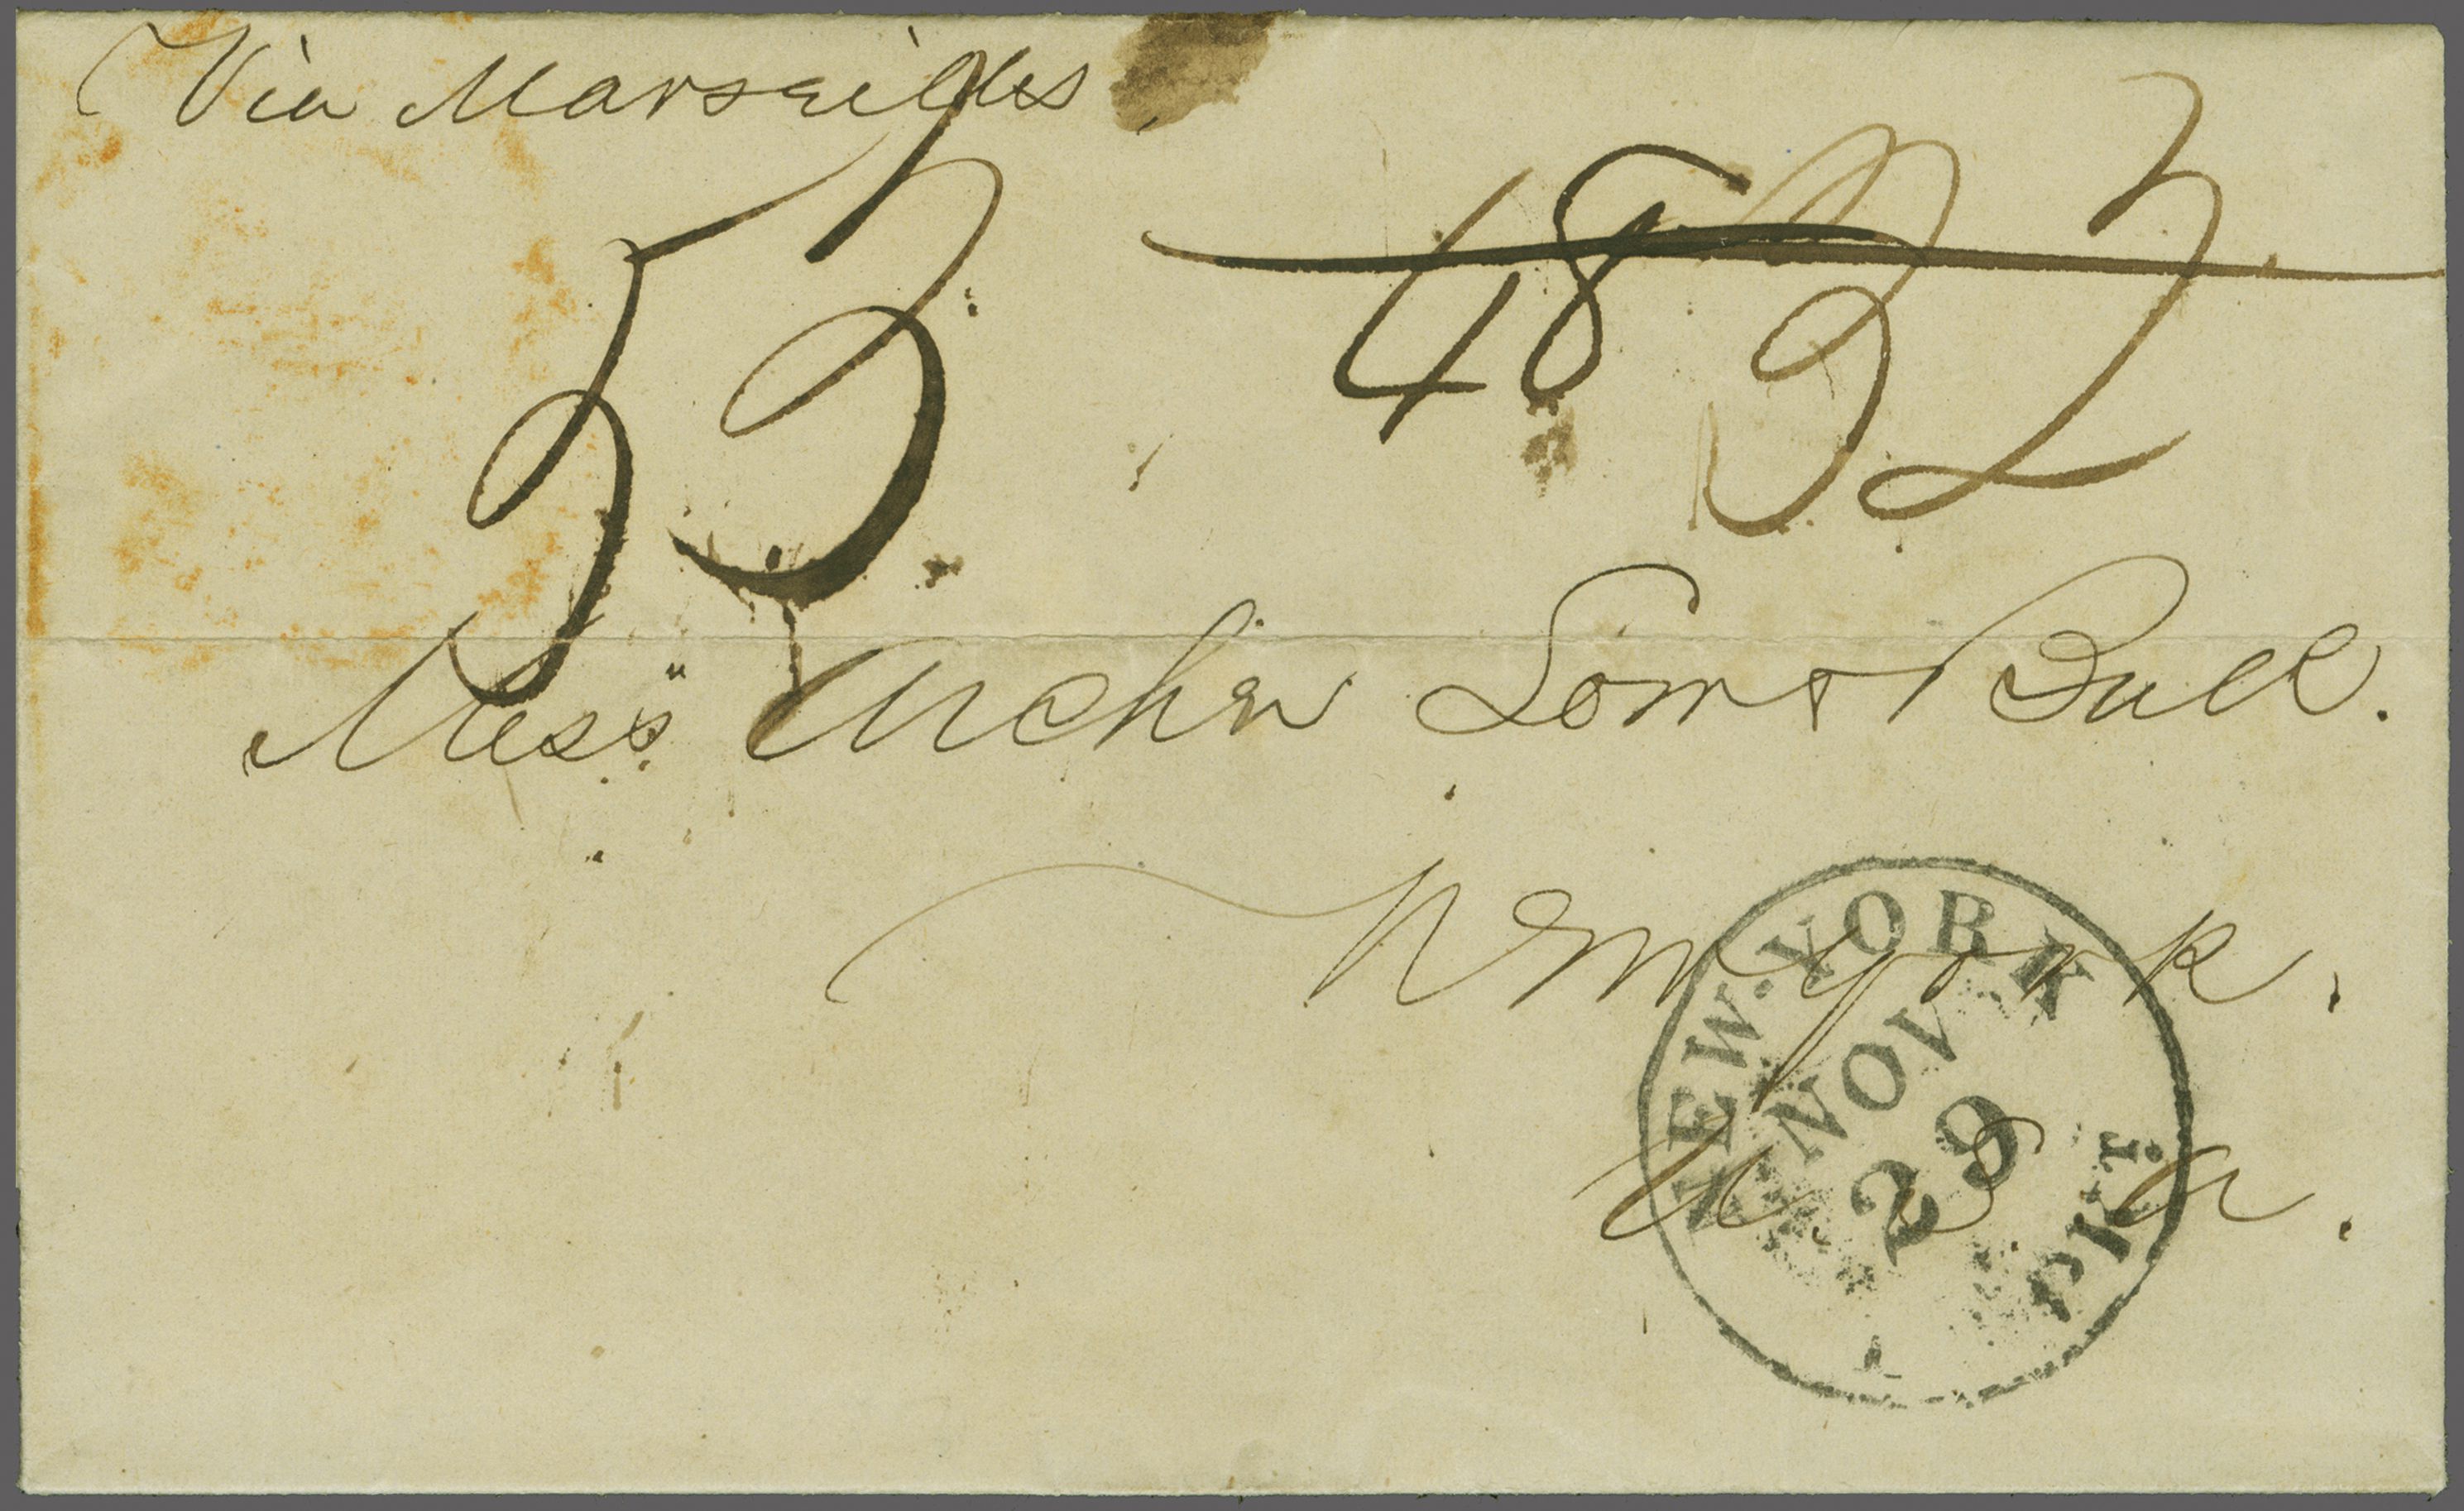 Via Marseilles
53 48 32
Mess" Archer Bull.
New York.
U S A.
NEW-YORK
NOV
29
PKT.